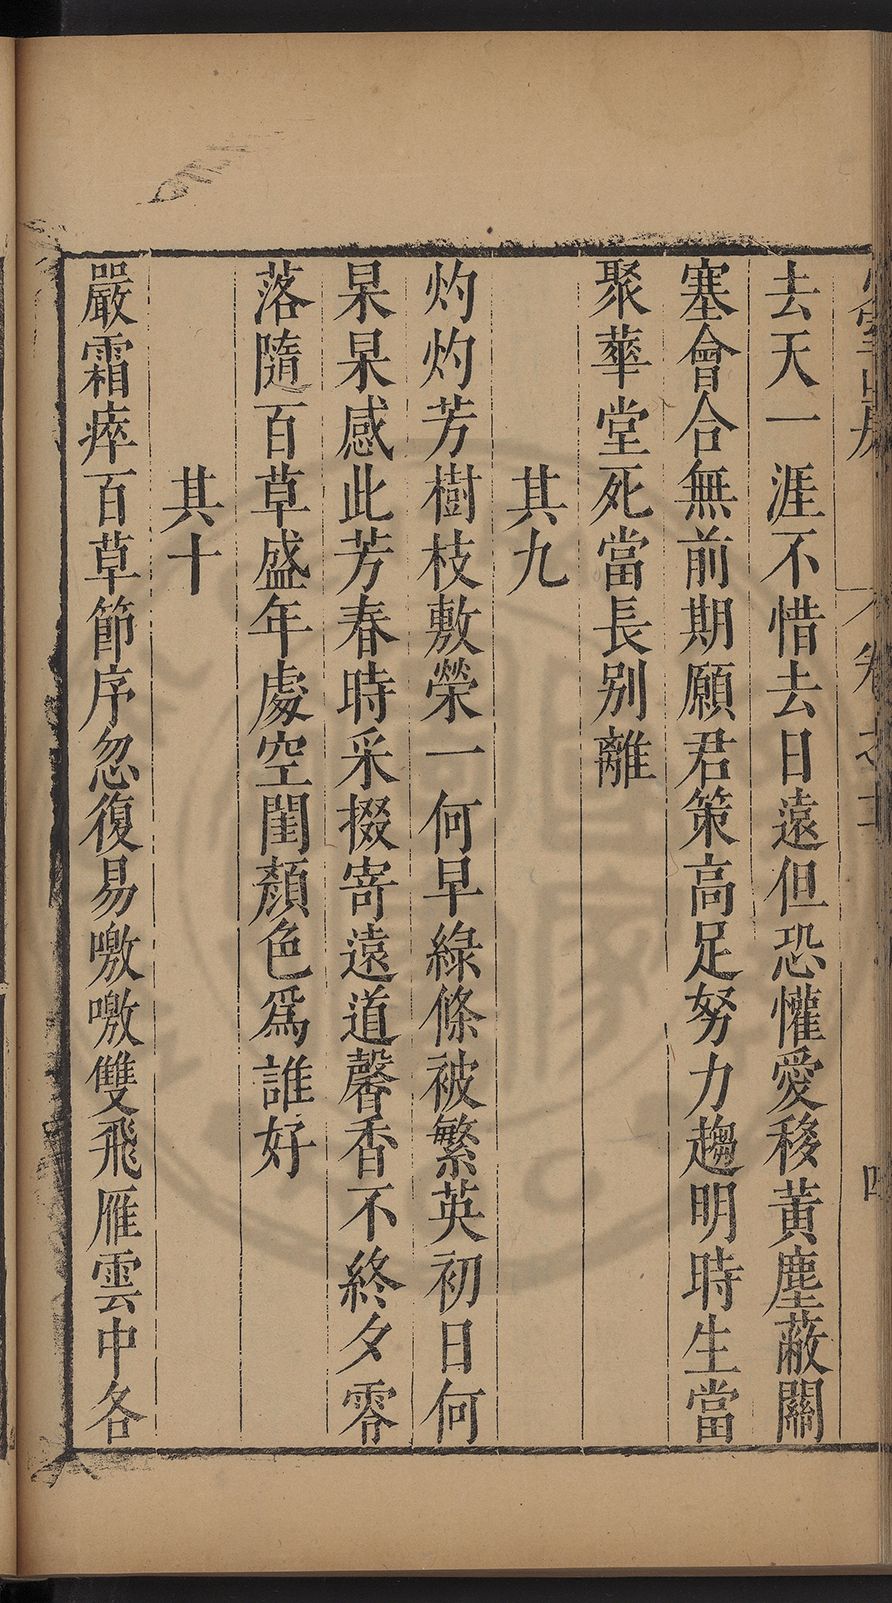 卷之
四
去天一涯不惜去日遠但恐懽愛移黃塵蔽關
塞會合無前期願君策高足努力趨明時生當
聚華堂死當長別離
其九
灼灼芳樹枝敷榮一何早綠條被繁英初日何
杲杲感此芳春時采掇寄遠道馨香不終夕零
落隨百草盛年處空閨顏色爲誰好
其十
嚴霜瘁百草節序忽復易嗷嗷雙飛雁雲中各